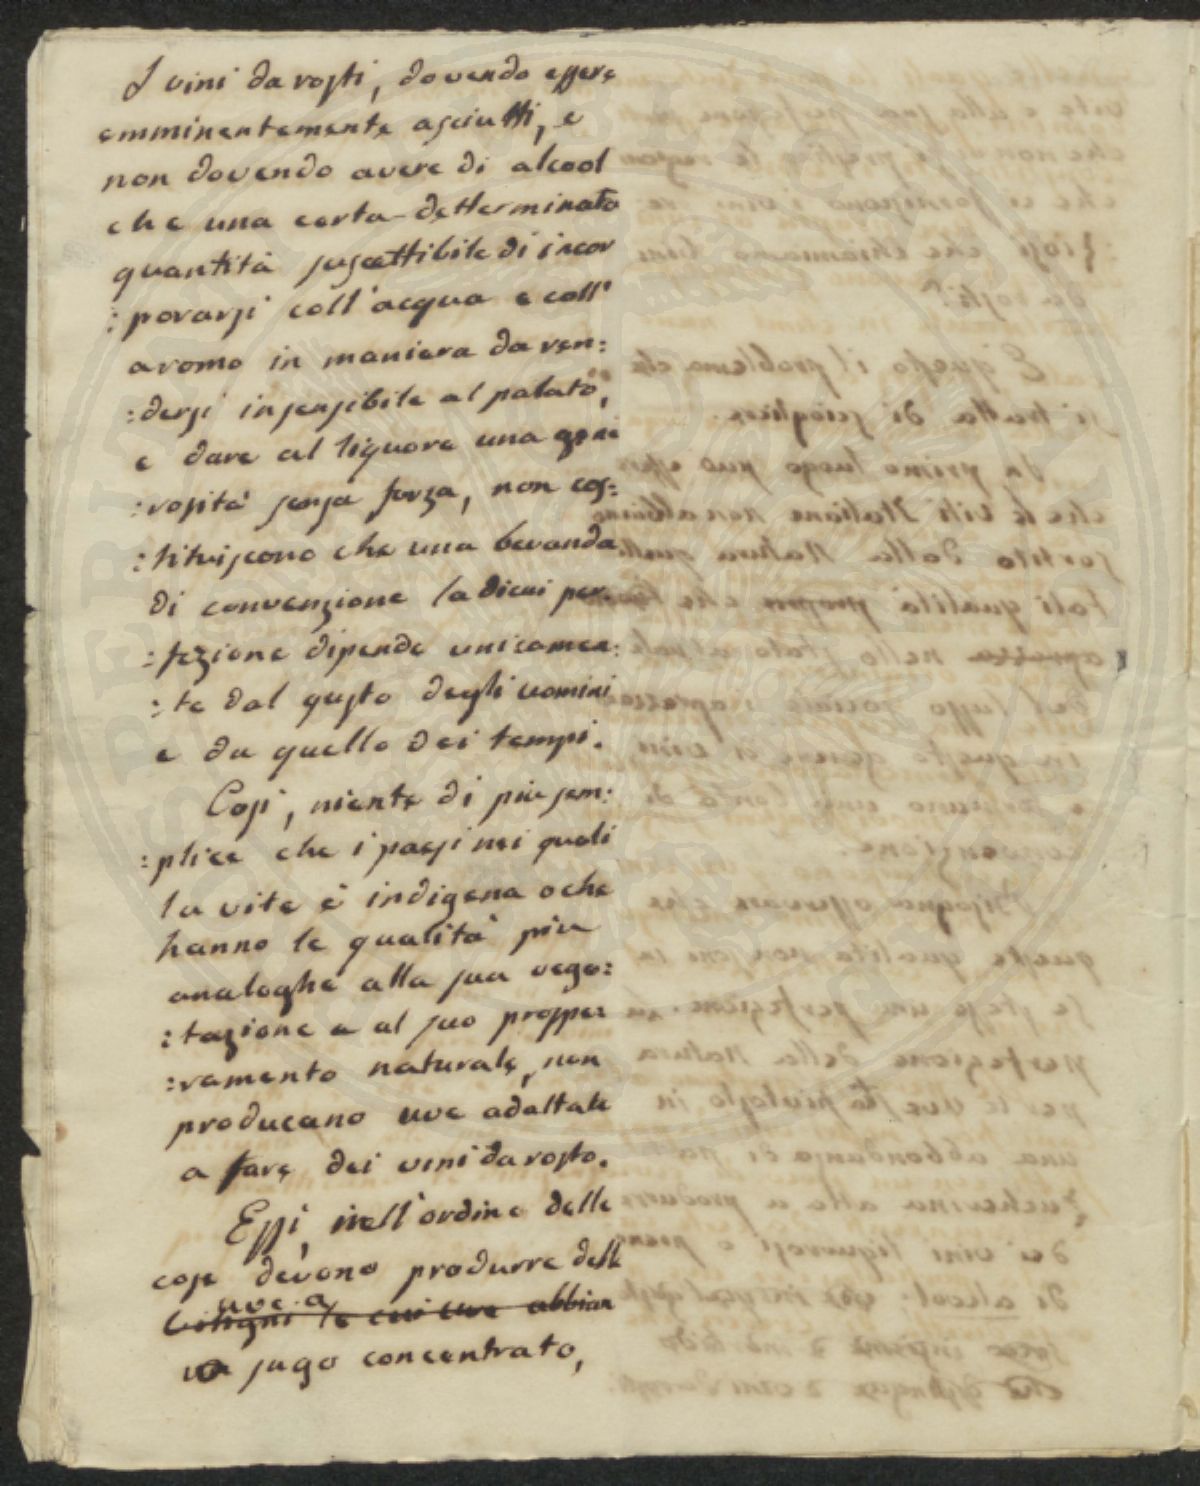 I vini da rosti, dovendo essere
emminentemente asciutti, e
non dovendo avere di alcool
che una certa determinata
quantità suscettibile di incor
:porarsi coll'acqua e coll'
aromo in maniera da ren:
:dersi insensibile al palato,
e dare al liquore una gene
:rosità senza forza, non cos:
:tituiscono che una bevanda
di convenzione la di cui per
:fezione dipende unicamen:
:te dal gusto degli uomini
e da quello dei tempi.
Così, niente di più sem:
:plice che i paesi nei quali
la vite è indigena o che
hanno le qualità più
analoghe alla sua vege:
:tazione e al suo prospe:
:ramento naturale, non
producano uve adattate
a fare dei vini da rosto.
Essi, nell'ordine delle
cose devono produrre delle
uve a
vitigni le cui uve abbian
sugo concentrato,